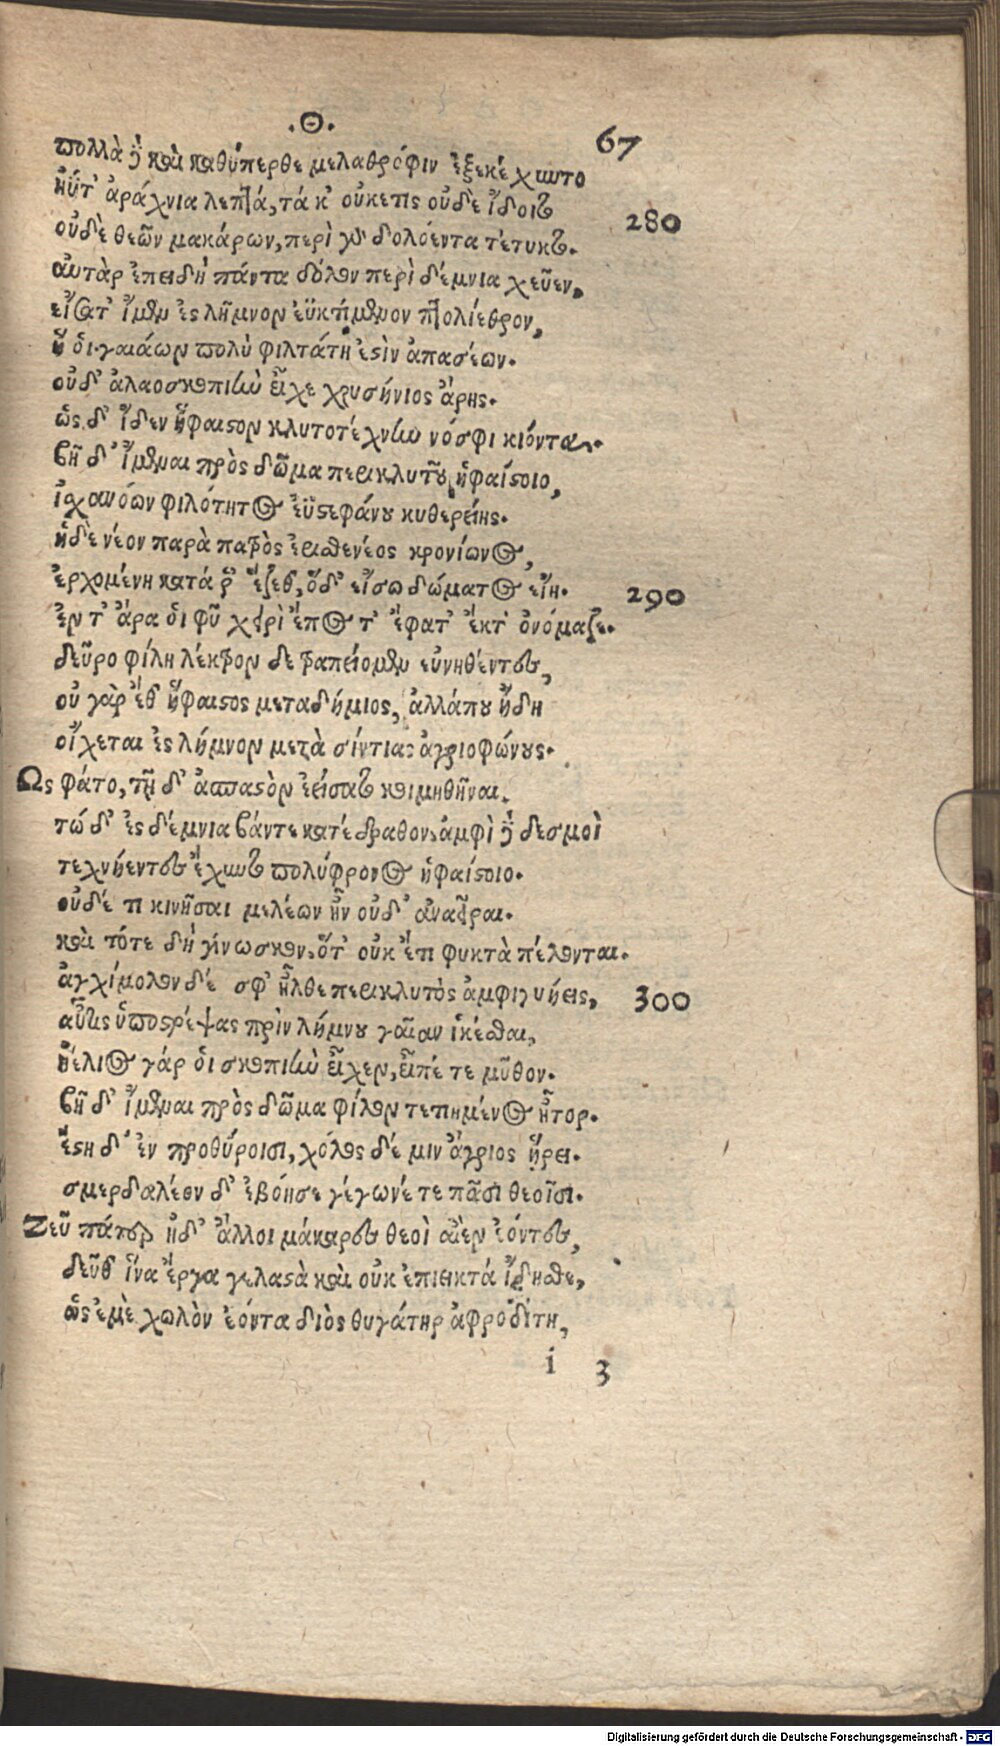 .Θ.
67
πολλὰ δὲ καὶ καθύπερθε μελαθρόφιν ἐξεκέχυντο
ἠΰτ' ἀράχνια λεπτά, τά κ' οὐκέτις οὐδὲ ἴδοιτο
280
οὐδὲ θεῶν μακάρων, περὶ γὰρ δολόεντα τέτυκτο.
αὐτὰρ ἐπειδὴ πάντα δόλον περὶ δέμνια χεῦεν,
εἴσατ' ἴμεν ἐς λῆμνον ἐϋκτίμενον πτολίεθρον,
ἥ οἱ γαιάων πολὺ φιλτάτη ἐστὶν ἁπασέων.
οὐδ' ἀλαοσκοπιὴν εἶχε χρυσήνιος ἄρης.
ὡς δ' ἴδεν ἥφαιστον κλυτοτέχνην νόσφι κιόντα.
βῆ δ' ἴμεναι πρὸς δῶμα περικλυτοῦ ἡφαίστοιο,
ἰχανόων φιλότητος ἐϋστεφάνου κυθερείης.
ἡ δὲ νέον παρὰ πατρὸς ἐρισθενέος κρονίωνος,
ἐρχομένη κατά ῥ' ἕζεθ', ὅδ' εἴσω δώματος εἴη.
290
ἔν τ' ἄρα οἱ φῦ χειρὶ ἔπος τ' ἔφατ' ἔκτ' ὀνόμαζε.
δεῦρο φίλη λέκτρον δε τραπείομεν εὐνηθέντες,
οὐ γὰρ ἔθ' ἥφαιστος μεταδήμιος, ἀλλάπου ἤδη
οἴχεται ἐς λήμνον μετὰ σίντιας ἀγριοφώνους.
Ως φάτο, τῇ δ' ἀσπαστὸν ἐείσατο κοιμηθῆναι.
τώ δ' ἐς δέμνια βάντε κατέδραθον, ἀμφὶ δὲ δεσμοὶ
τεχνήεντες ἔχυντο πολύφρονος ἡφαίστοιο.
οὐδέ τι κινῆσαι μελέων ἦν οὐδ' ἀναεῖραι.
καὶ τότε δὴ γίνωσκον, ὅτ' οὐκ ἔτι φυκτὰ πέλονται.
ἀγχίμολον δέ σφ' ἦλθε περικλυτὸς ἀμφιγυήεις,
300
αὖτις ὑποστρέψας πρὶν λήμνου γαῖαν ἱκέσθαι,
ἠέλιος γάρ οἱ σκοπιὴν εἶχεν, εἶπέ τε μῦθον.
βῆ δ' ἴμεναι πρὸς δῶμα φίλον τετιημένος ἦτορ.
ἔστη δ' ἐν προθύροισι, χόλος δέ μιν ἄγριος ᾕρει.
σμερδαλέον δ' ἐβόησε γέγωνέ τε πᾶσι θεοῖσι.
Ζεῦ πάτερ ἠδ' ἄλλοι μάκαρες θεοὶ αἰὲν ἐόντες,
δεῦθ' ἵνα ἔργα γελαστὰ καὶ οὐκ ἐπιεικτά ἴδησθε,
ὡς ἐμὲ χωλὸν ἐόντα διὸς θυγάτηρ ἀφροδίτη,
i 3
Digitalisierung gefördert durch die Deutsche Forschungsgemeinschaft - DFG